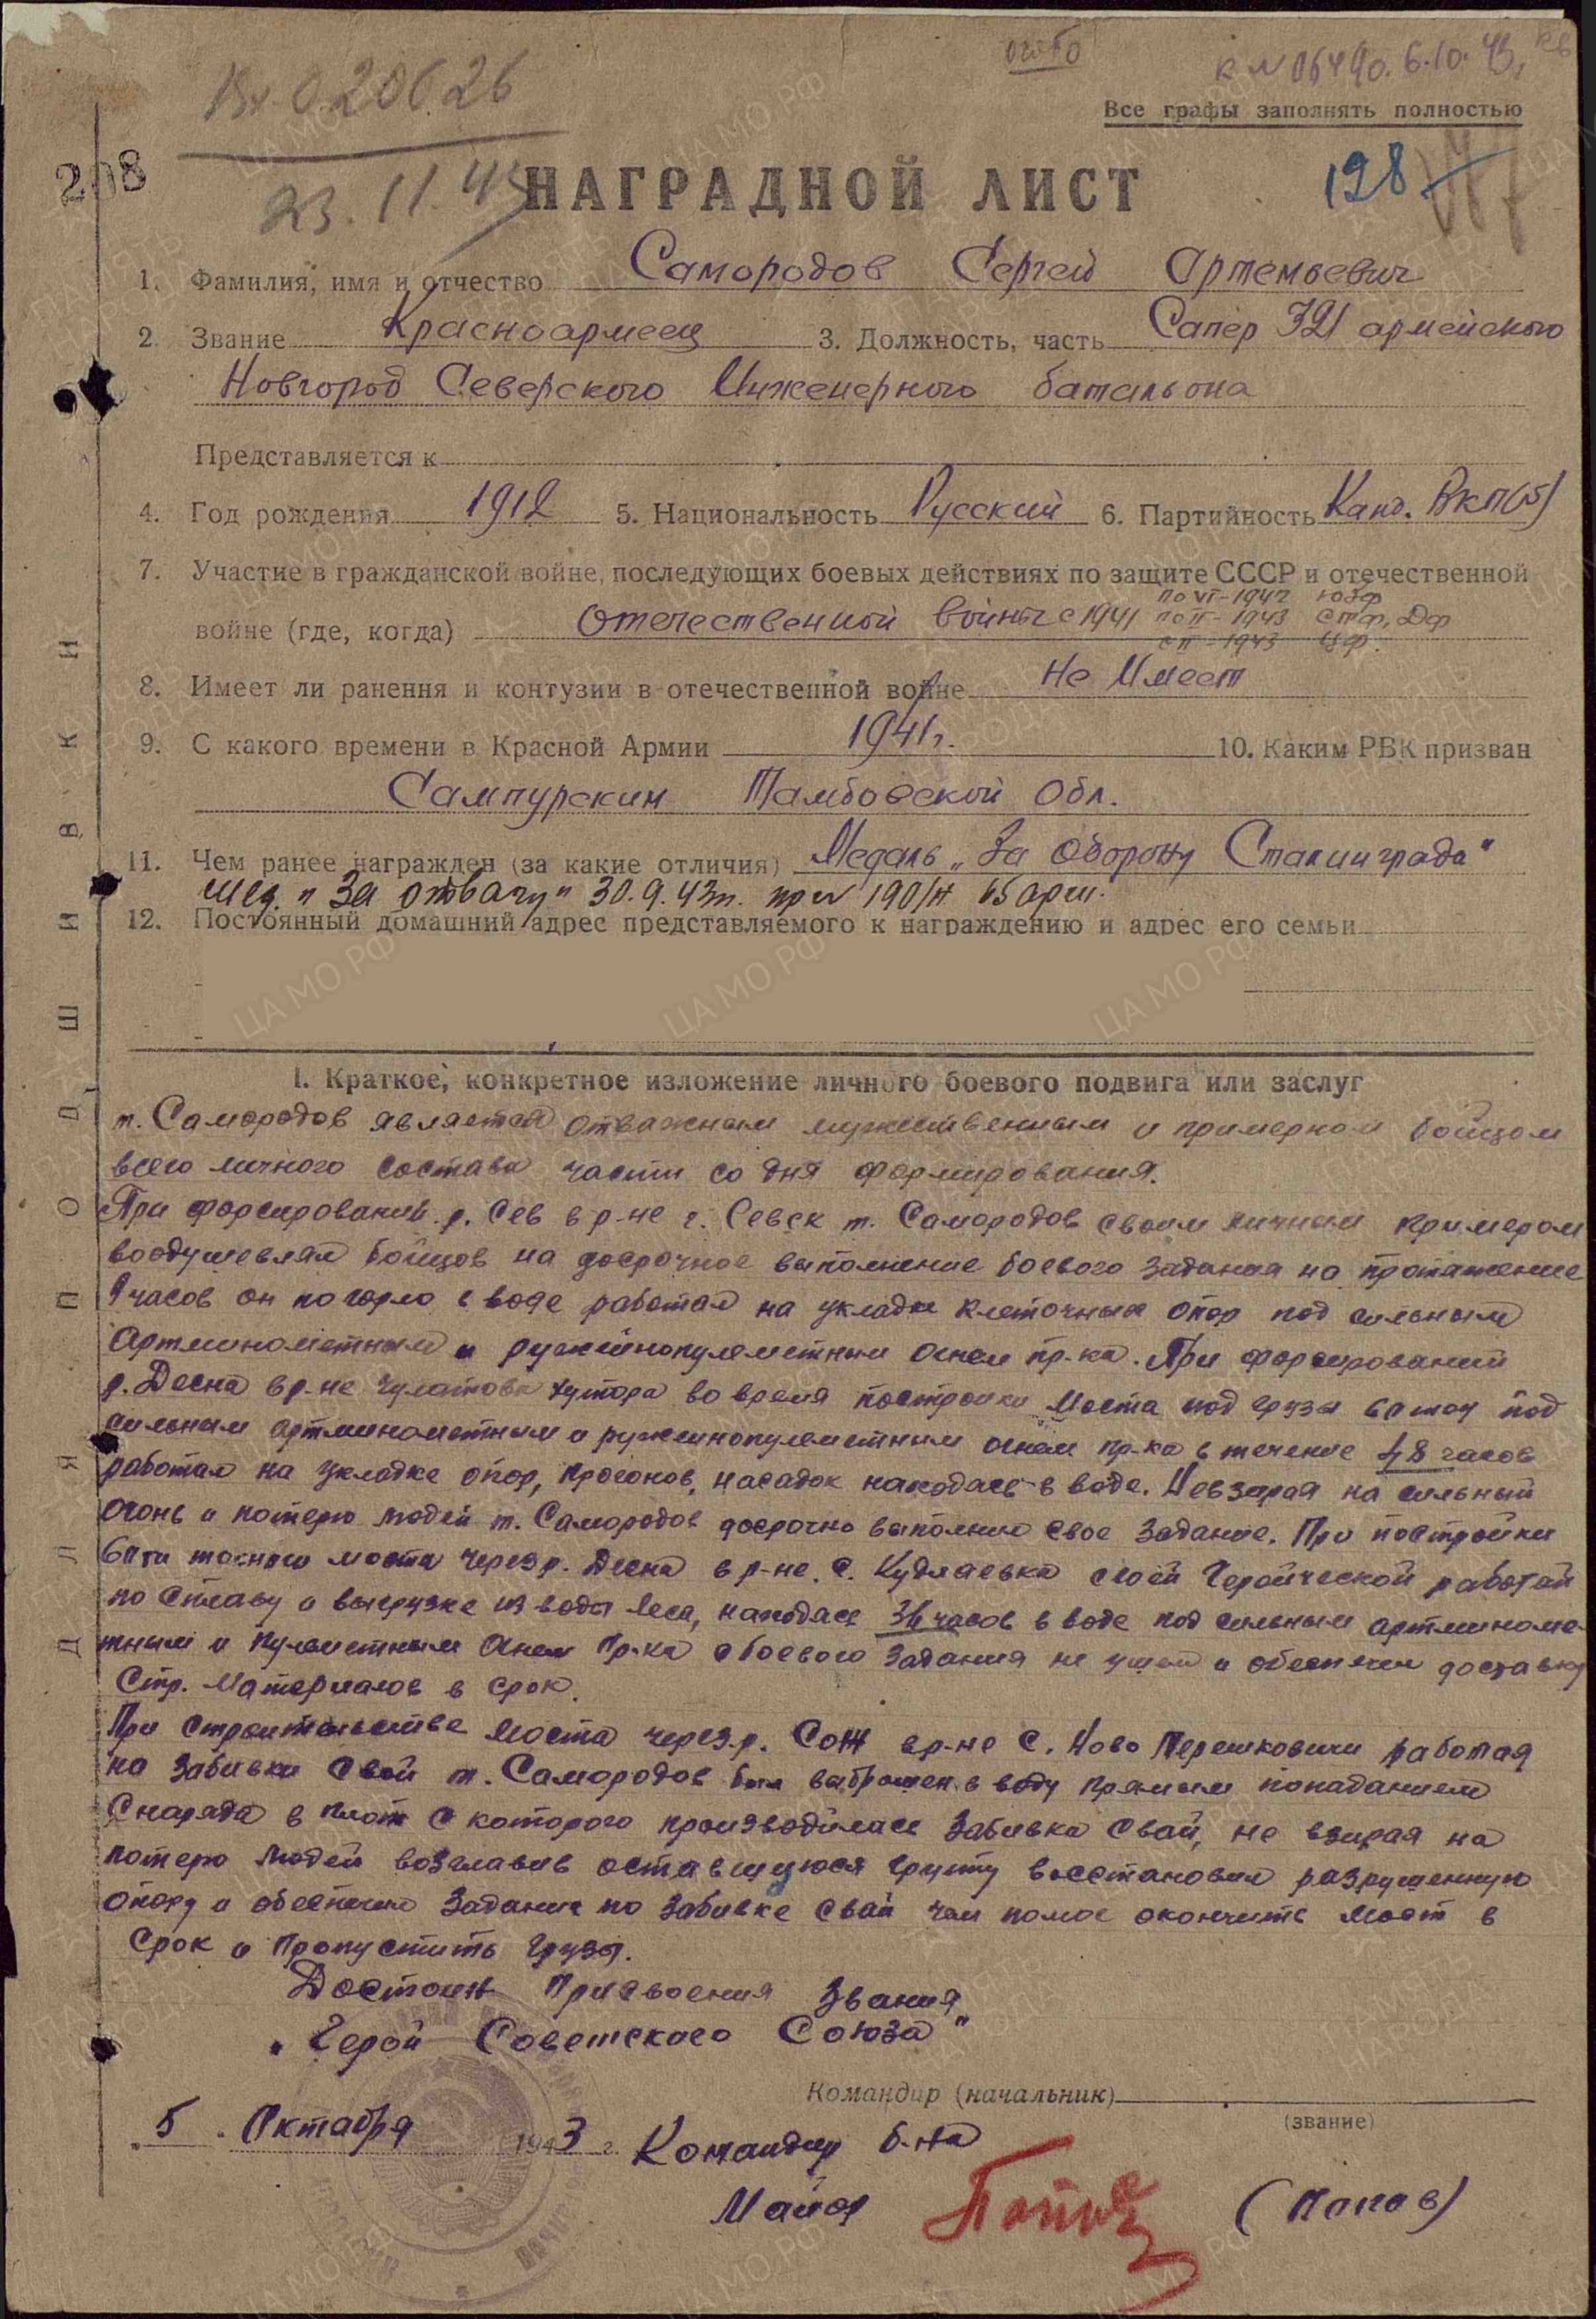 Вх. 020626
23.11.43
208
особо
к N 06490. 6.10.43.
Все графы заполнять полностью
198
НАГРАДНОЙ ЛИСТ
1. Фамилия, имя и отчество Самородов Сергей Артемьевич
2. Звание Красноармеец 3. Должность, часть Сапер 321 армейского
Новгород Северского Инженерного батальона
Представляется к
4. Год рождения 1912 5. Национальность Русский 6. Партийность Канд. ВКП(б)
7. Участие в гражданской войне, последующих боевых действиях по защите СССР и отечественной
по VI-1942 ЮЗФ
войне (где, когда) Отечественной войны с 1941 по II-1943 СТФ, ДФ
с II-1943 ЦФ.
8. Имеет ли ранения и контузии в отечественной войне Не Имеет
9. С какого времени в Красной Армии 1941г. 10. Каким РВК призван
Сампурским Тамбовской Обл.
11. Чем ранее награжден (за какие отличия) Медаль „За Оборону Сталинграда"
мед. "За отвагу" 30.9.43г. пр N 190/н 65 арм.
12. Постоянный домашний адрес представляемого к награждению и адрес его семьи
I. Краткое, конкретное изложение личного боевого подвига или заслуг
т. Самородов является отважным мужественным и примерном бойцом
всего личного состава части со дня формирования.
При форсировании р. Сев в р-не г. Севск т. Самородов своим личным примером
воодушевлял бойцов на досрочное выполнение боевого задания на протяжение
9 часов он по горло в воде работал на укладке клеточных опор под сильным
артминометным и ружейнопулеметным огнем пр-ка. При форсирований
р. Десна в р-не хутора во время постройки Моста под грузы 60 тон под
сильным артминометным и ружейнопулеметным огнем пр-ка в течение 48 часов
работал на укладке опор, прогонов, насадок находясь в воде. Невзирая на сильный
огонь и потерю людей т. Самородов досрочно выполнил свое задание. При постройки
60ти тонного моста через р. Десна в р-не. С. Кудлаевка своей Геройческой работой
по Сплаву и выгрузке из воды леса, находясь 36 часов в воде под сильным артминоме-
тным и пулеметным Огнем Пр-ка с боевого задания не ушел и обеспечил доставку
Стр. Материалов в срок.
При строительстве Моста через р. Сож в р-не С. Ново Терешковичи работая
на забивки Свай т. Самородов был выброшен в воду прямым попаданием
Снаряда в плот с которого производилась забивка Свай, не взирая на
потерю людей возглавив оставшуюся группу восстановил разрушенную
опору и обеспечил задание по забивке свай чем помог окончить мост в
Срок и пропустить грузы.
Достоин Присвоения Звания
„Герой Советского Союза"
Командир (начальник)
(звание)
„5" Октября 1943 г. Командир б-на
Майор Попов (Попов)
ДЛЯ ПОДШИВКИ